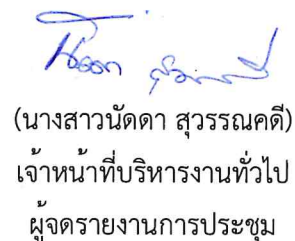 (นางสาวนัดดา สุวรรณคดี)
เจ้าหน้าที่บริหารงานทั่วไป
ผู้จดรายงานการประชุม